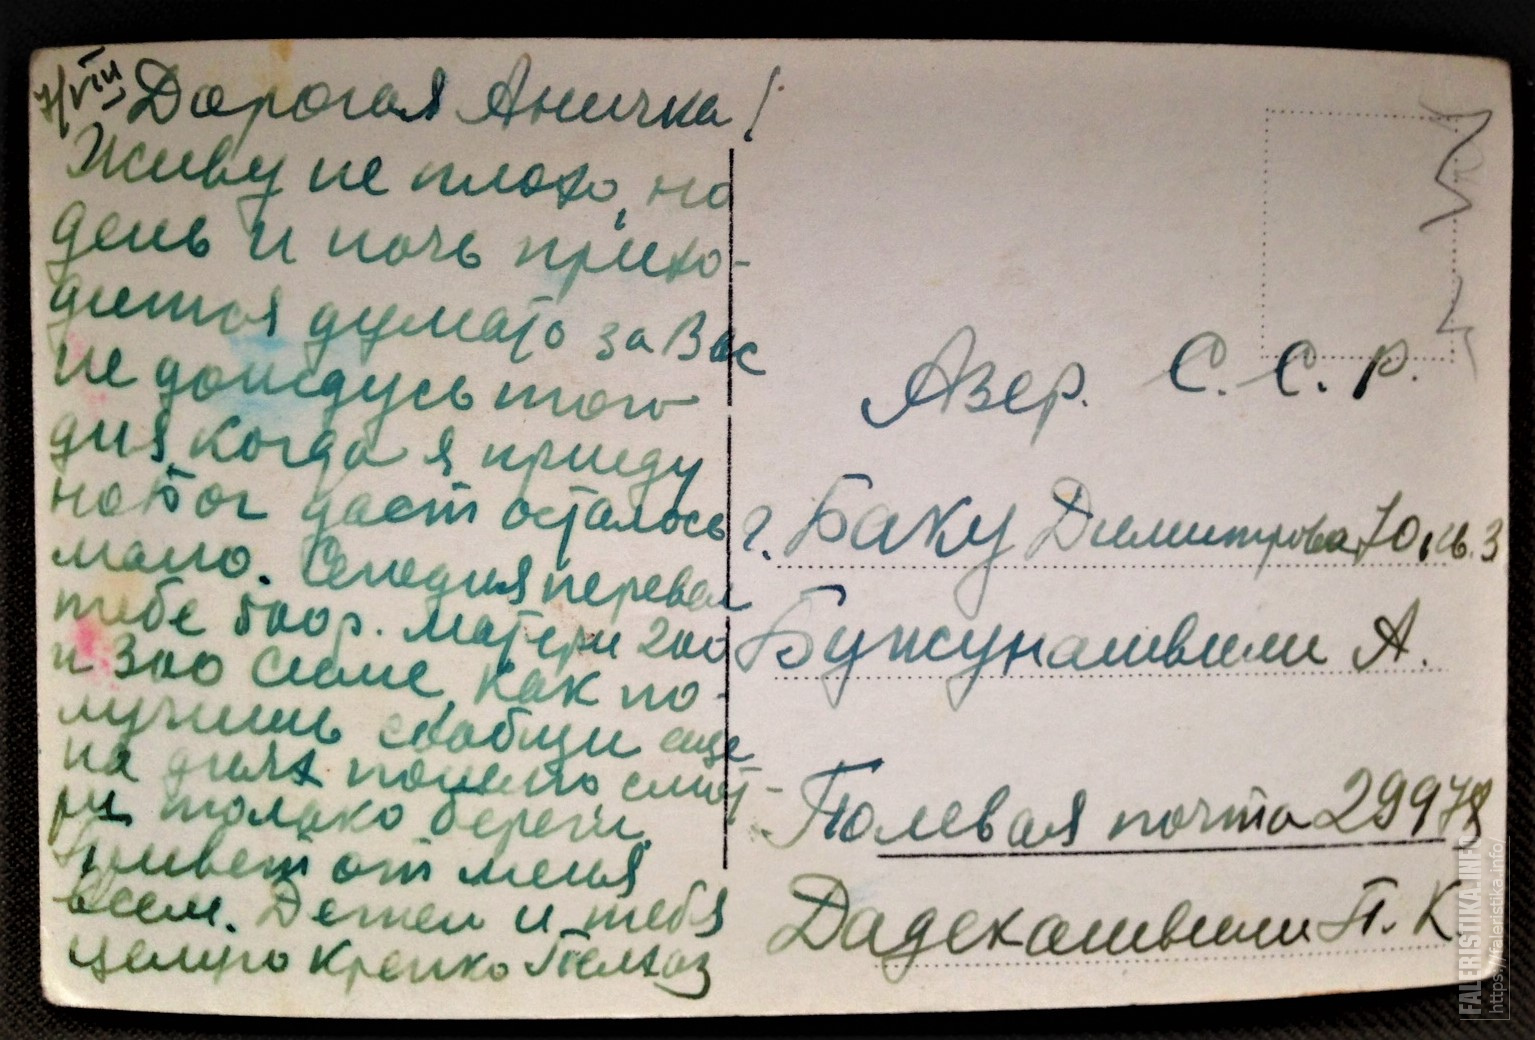 7/VIII
Дорогая Аничка!
Живу не плохо, но
день и ночь прихо-
дится думать за Вас
не дождусь того
дня когда я приеду
но бог даст осталось
мало. Сегодня перевел
тебе 500 р. матери 200
и 300 Симе, как по-
лучишь сообщи еще
на днях пошлю смот-
ри только береги.
Привет от меня
всем. Детей и тебя
целую крепко
Азер. С. С. Р.
г. Баку Димитрова 70, кв. 3
Бужунашвили А.
Полевая почта 29978
Дадекашвили П. К.
FALERISTIKA.INFO
https://faleristika.info/